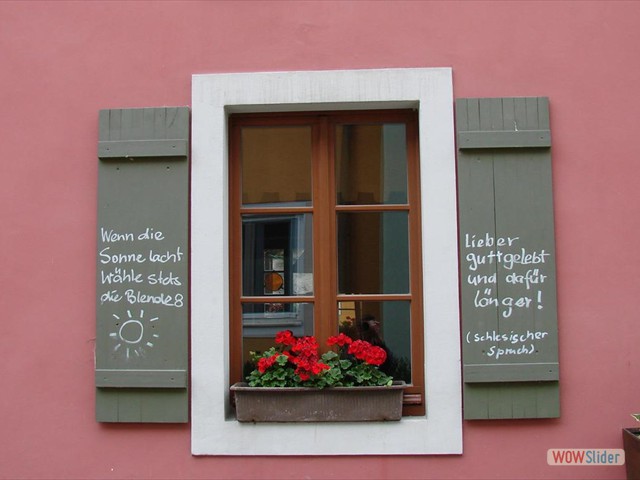 Wenn die
Sonne lacht
Wähle stets
die Blende 8
Lieber
gutt gelebt
und dafür
länger!
(schlesischer
Spruch)
WOWSlider